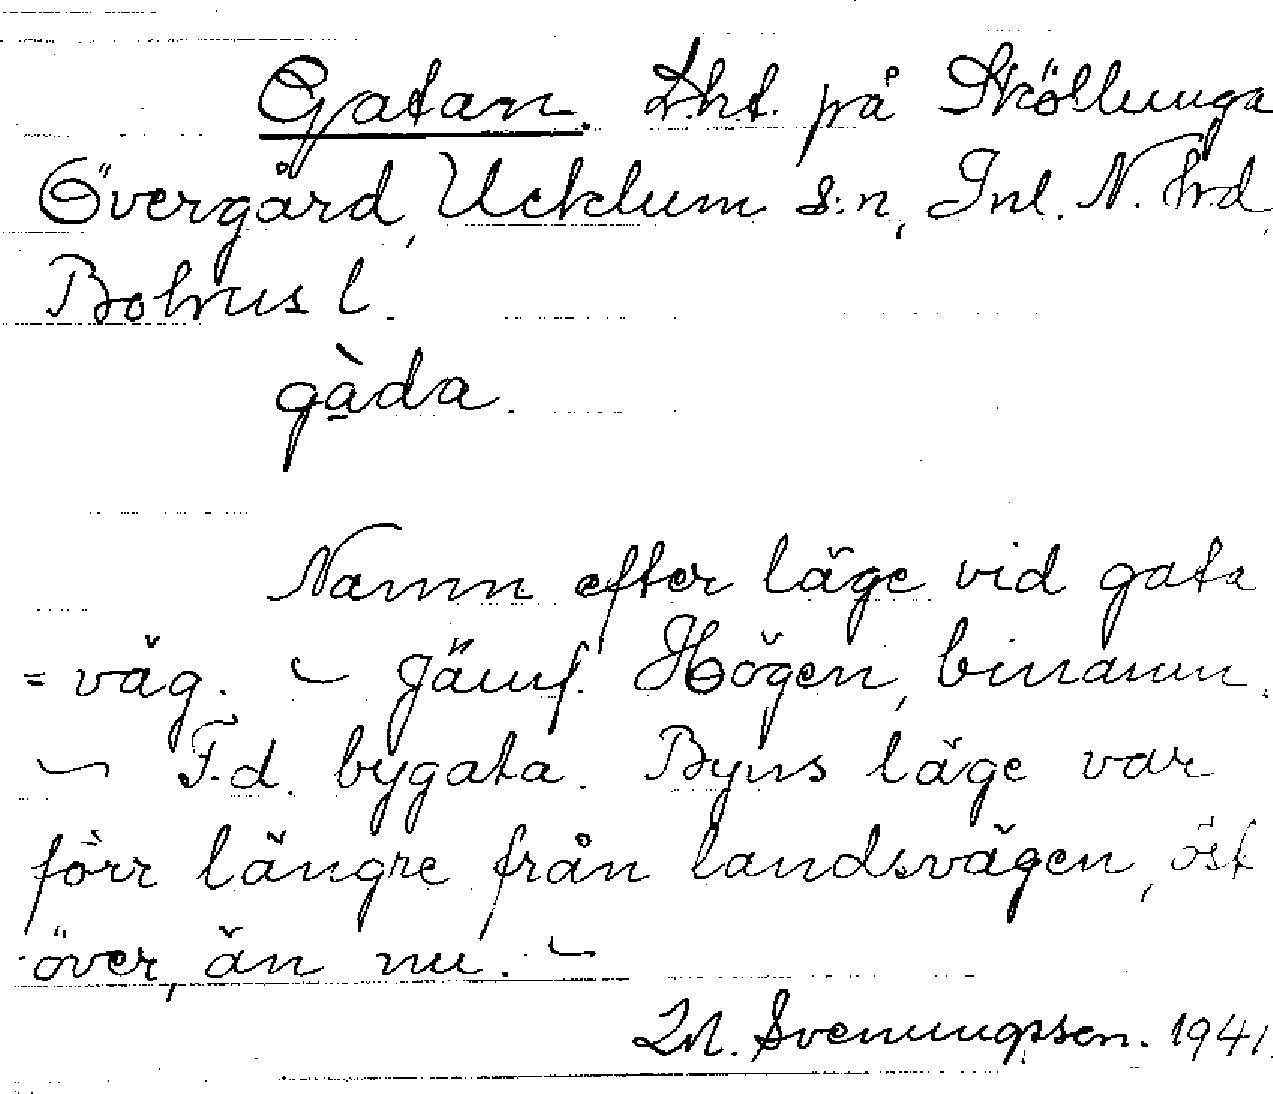 Gatan. Lht. på Sköllunga
Övergård, Ucklum s:n, Inl. N. hd,
Bohus l.
gàda.
Namn efter läge vid gata
= väg. – Jämf. Högen, binamn.
– F.d. bygata. Byns läge var
förr längre från landsvägen, öst
över, än nu. –
Svenungsson. 1941